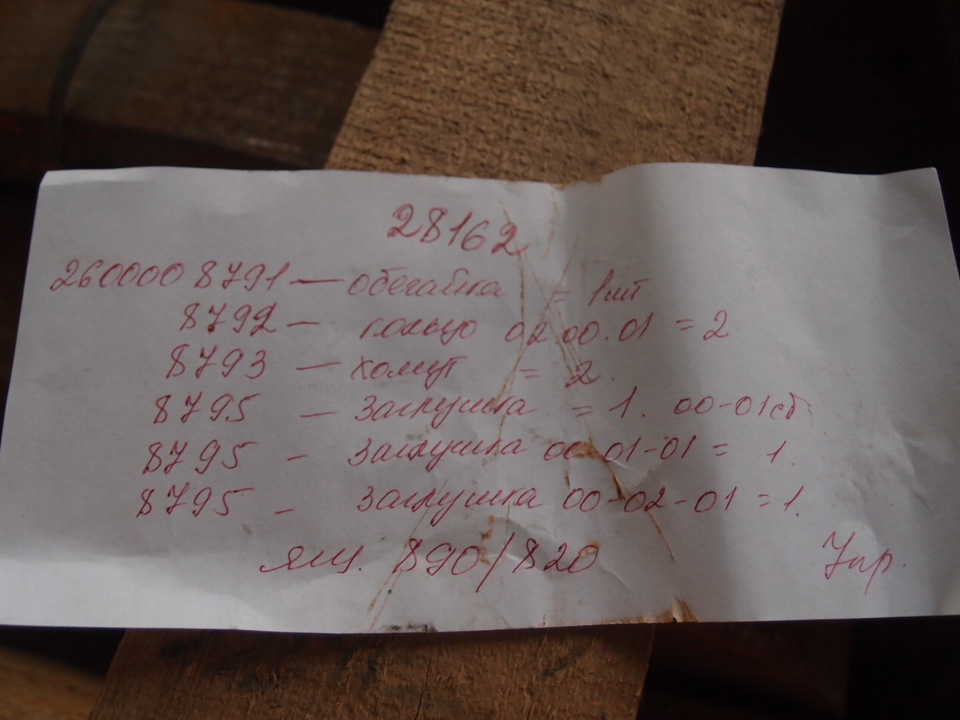 28162
2600008791 — обечайка = 1шт
8792 — кольцо 02 00.01 = 2
8793 — хомут = 2.
8795 — Заглушка = 1. 00-01сб
8795 - Заглушка 00 01-01 = 1.
8795 - Заглушка 00-02-01 = 1.
ящ. 890/820